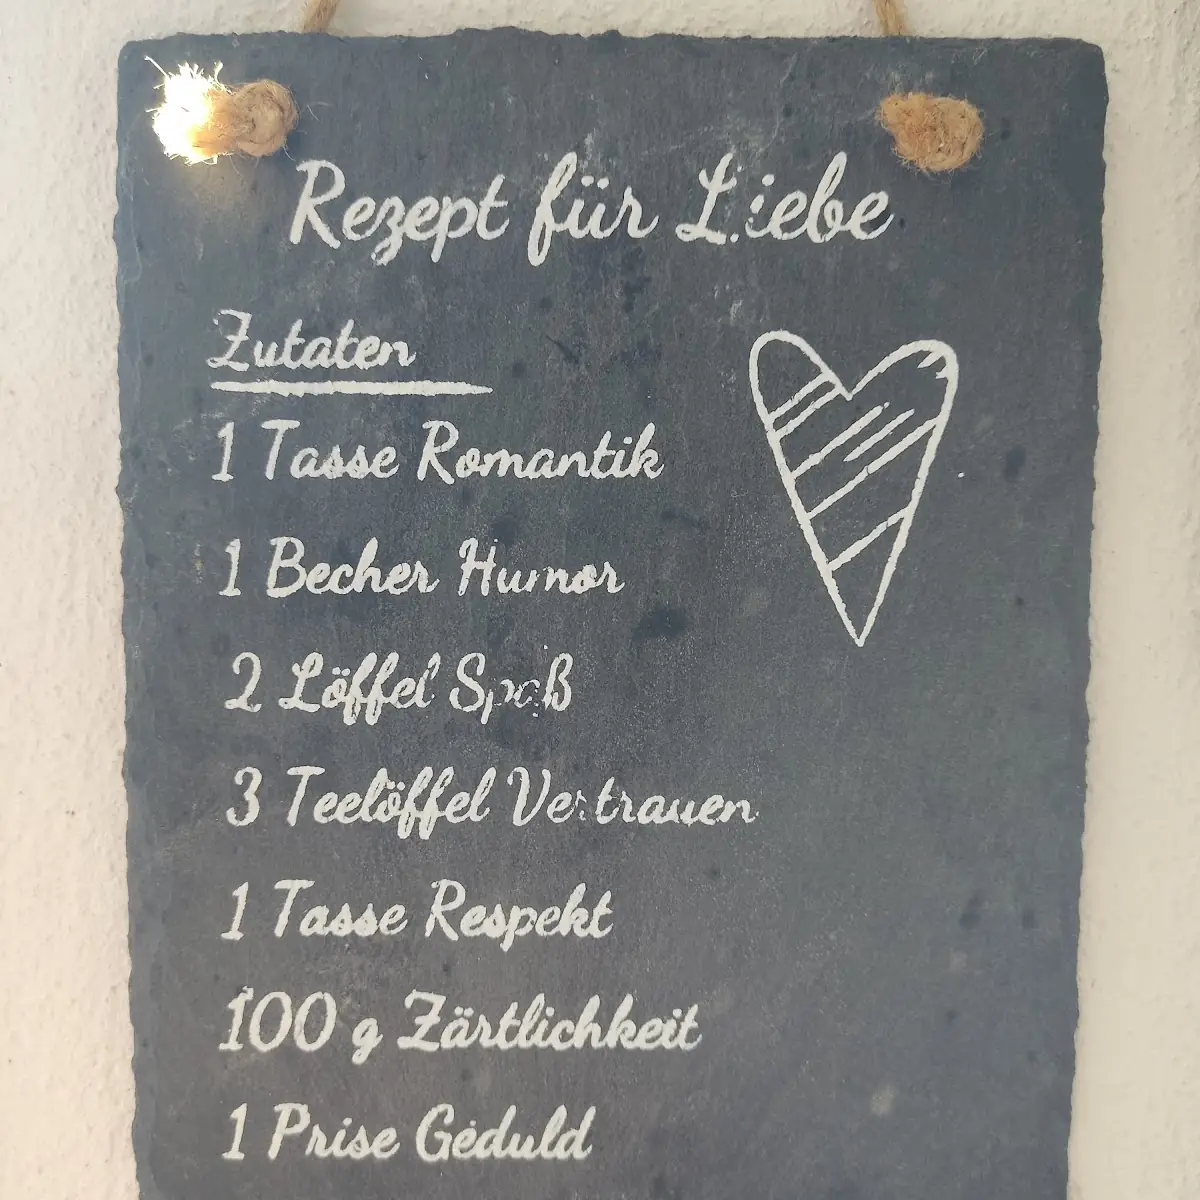 Rezept für Liebe
Zutaten
1 Tasse Romantik
1 Becher Humor
2 Löffel Spaß
3 Teelöffel Vertrauen
1 Tasse Respekt
100 g Zärtlichkeit
1 Prise Geduld